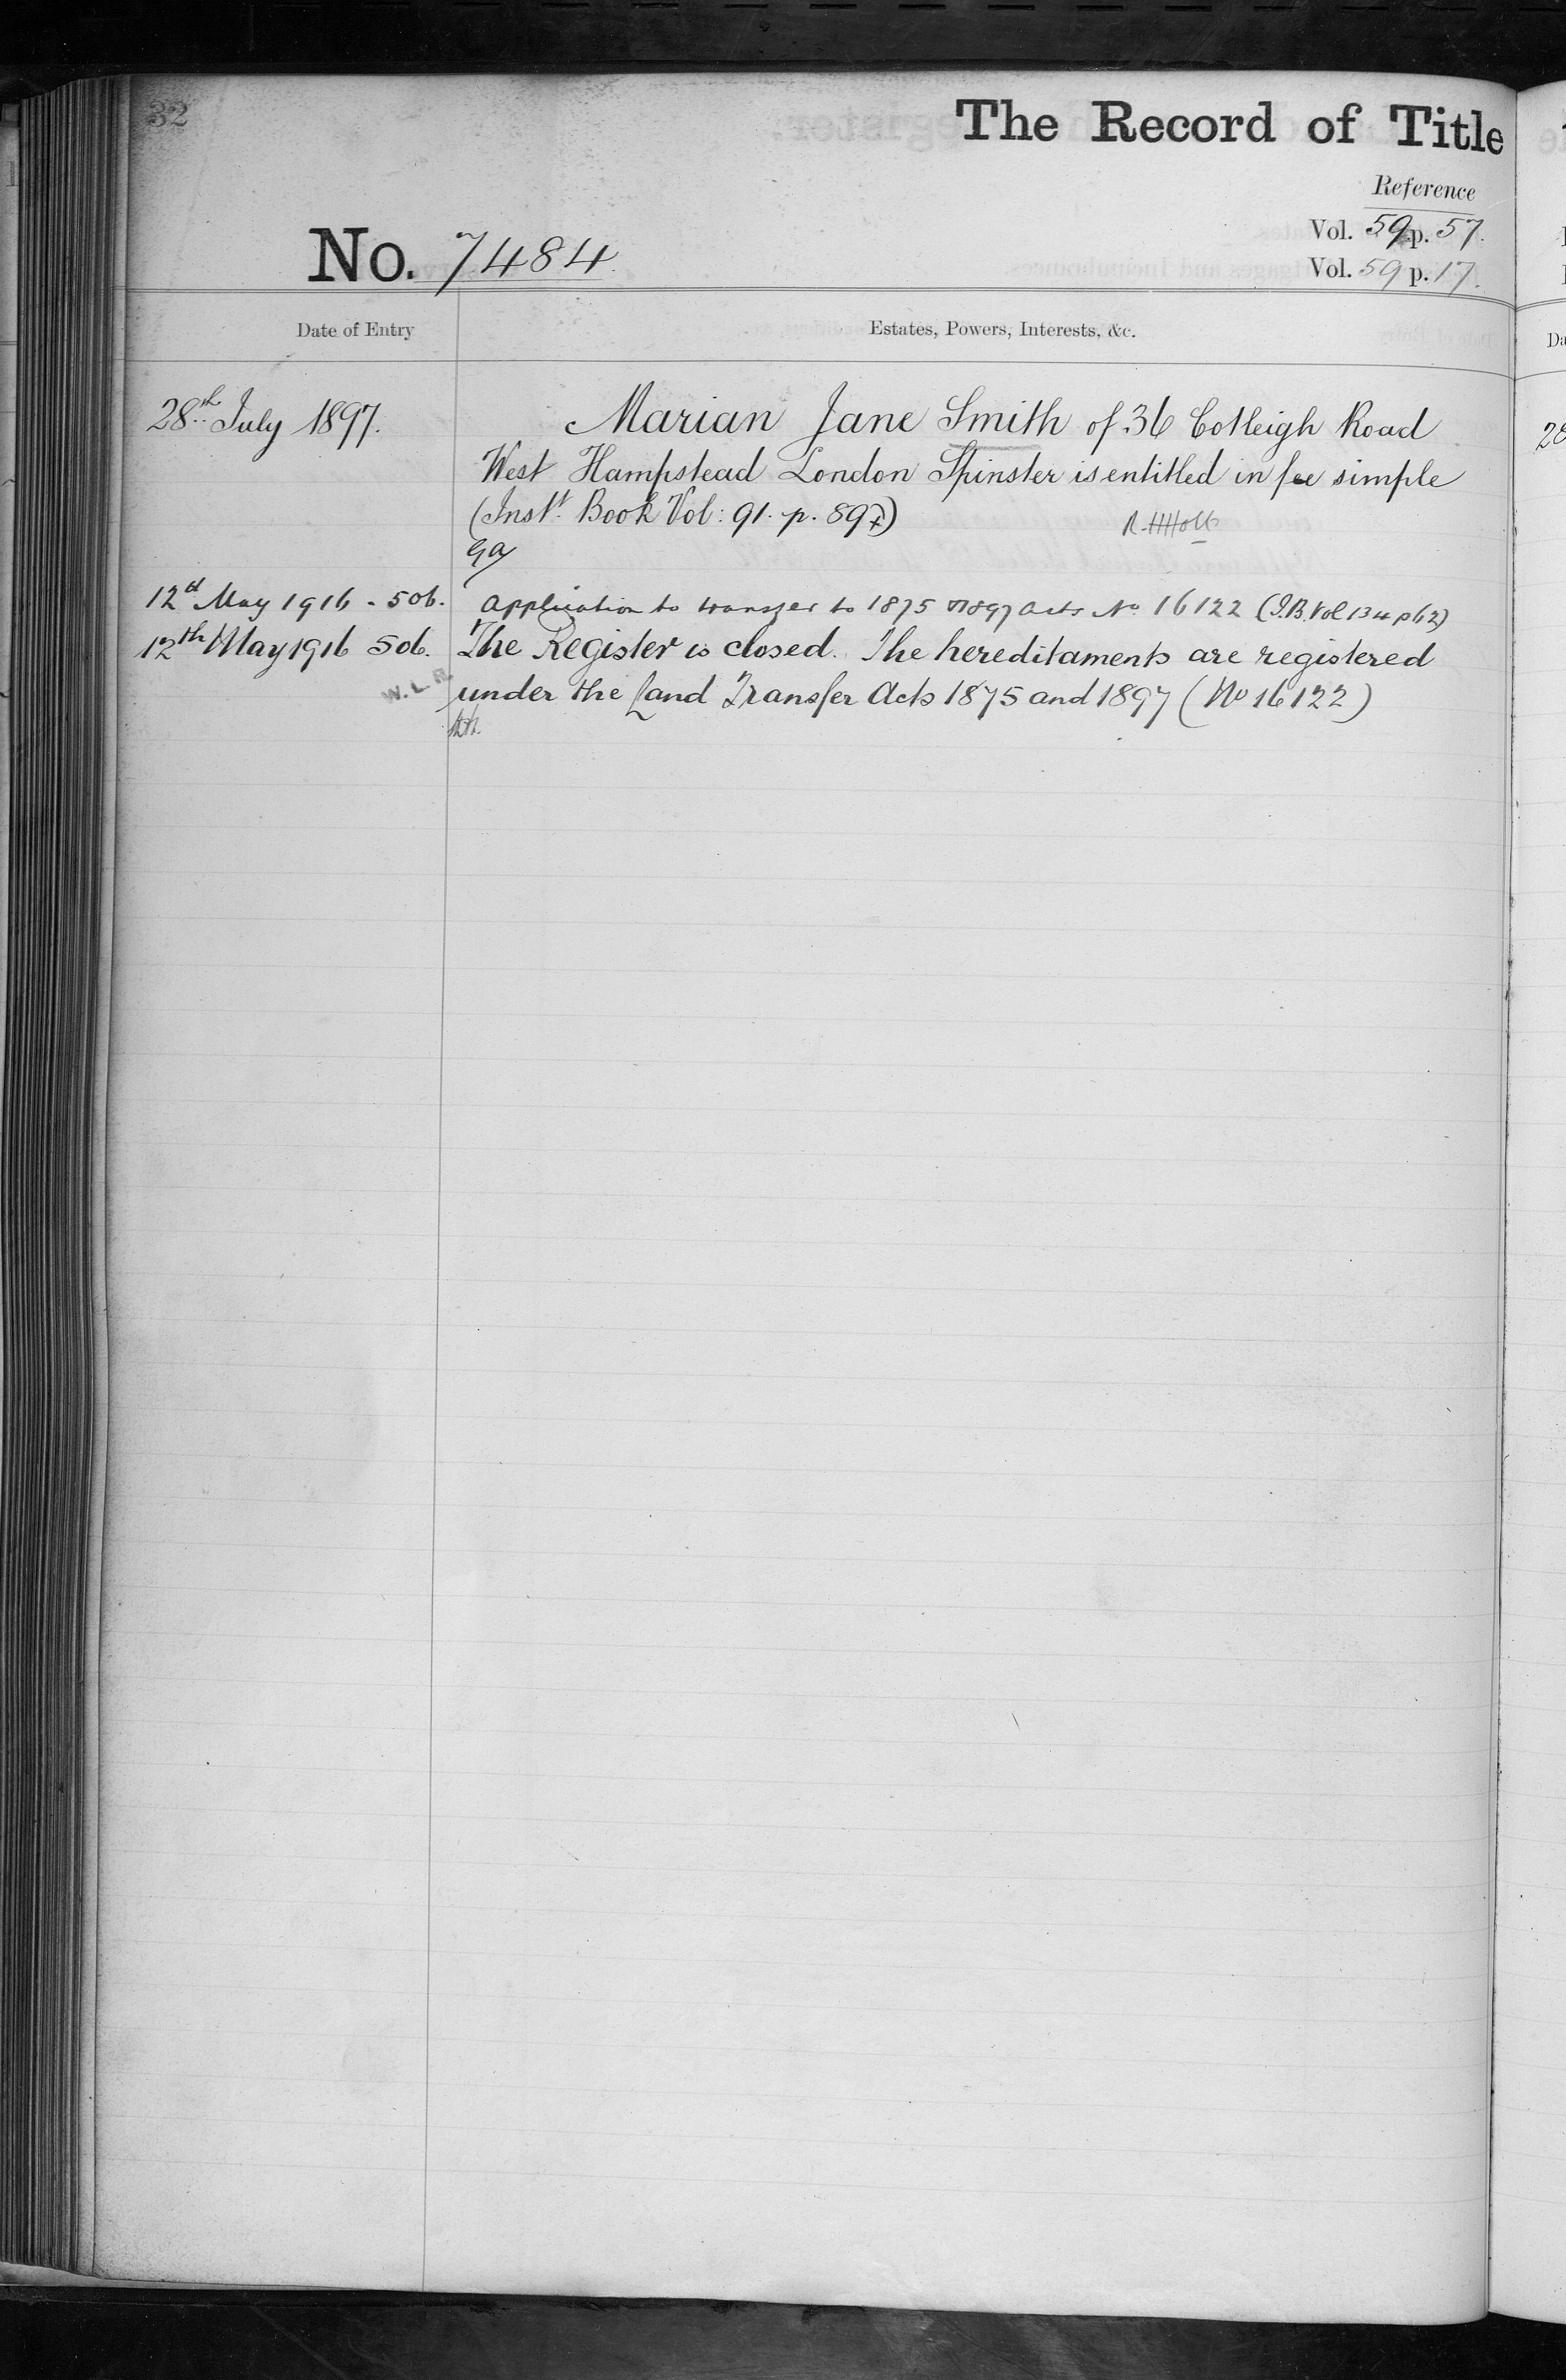 32
The Record of Title
Reference
Vol. 59 p. 57.
No. 7484.
Vol. 59 p. 17.
Date of Entry
Estates, Powers, Interests, &c.
28th July 1897.
Marian Jane Smith of 36 Cotleigh Road
West Hampstead London Spinster is entitled in fee simple
(Instt. Book Vol: 91. p. 897)
12th May 1916 - 506.
Application to transfer to 1875 & 1897 Acts No. 16122 (I.B. Vol 134 p 62)
12th May 1916 506.
The Register is closed. The hereditaments are registered
W.L.R.
under the Land Transfer Acts 1875 and 1897 (No 16122)